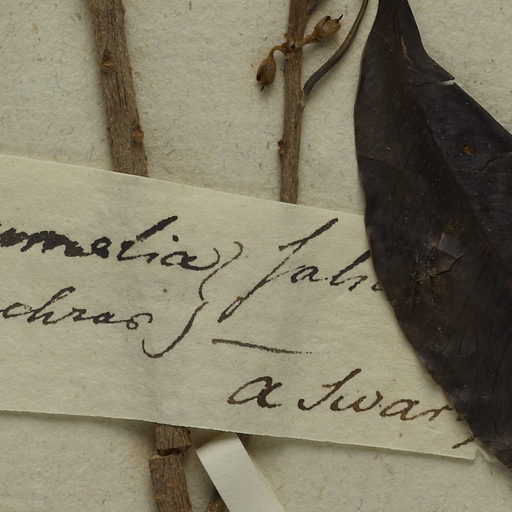 umelia } Salv
chras
a Swar